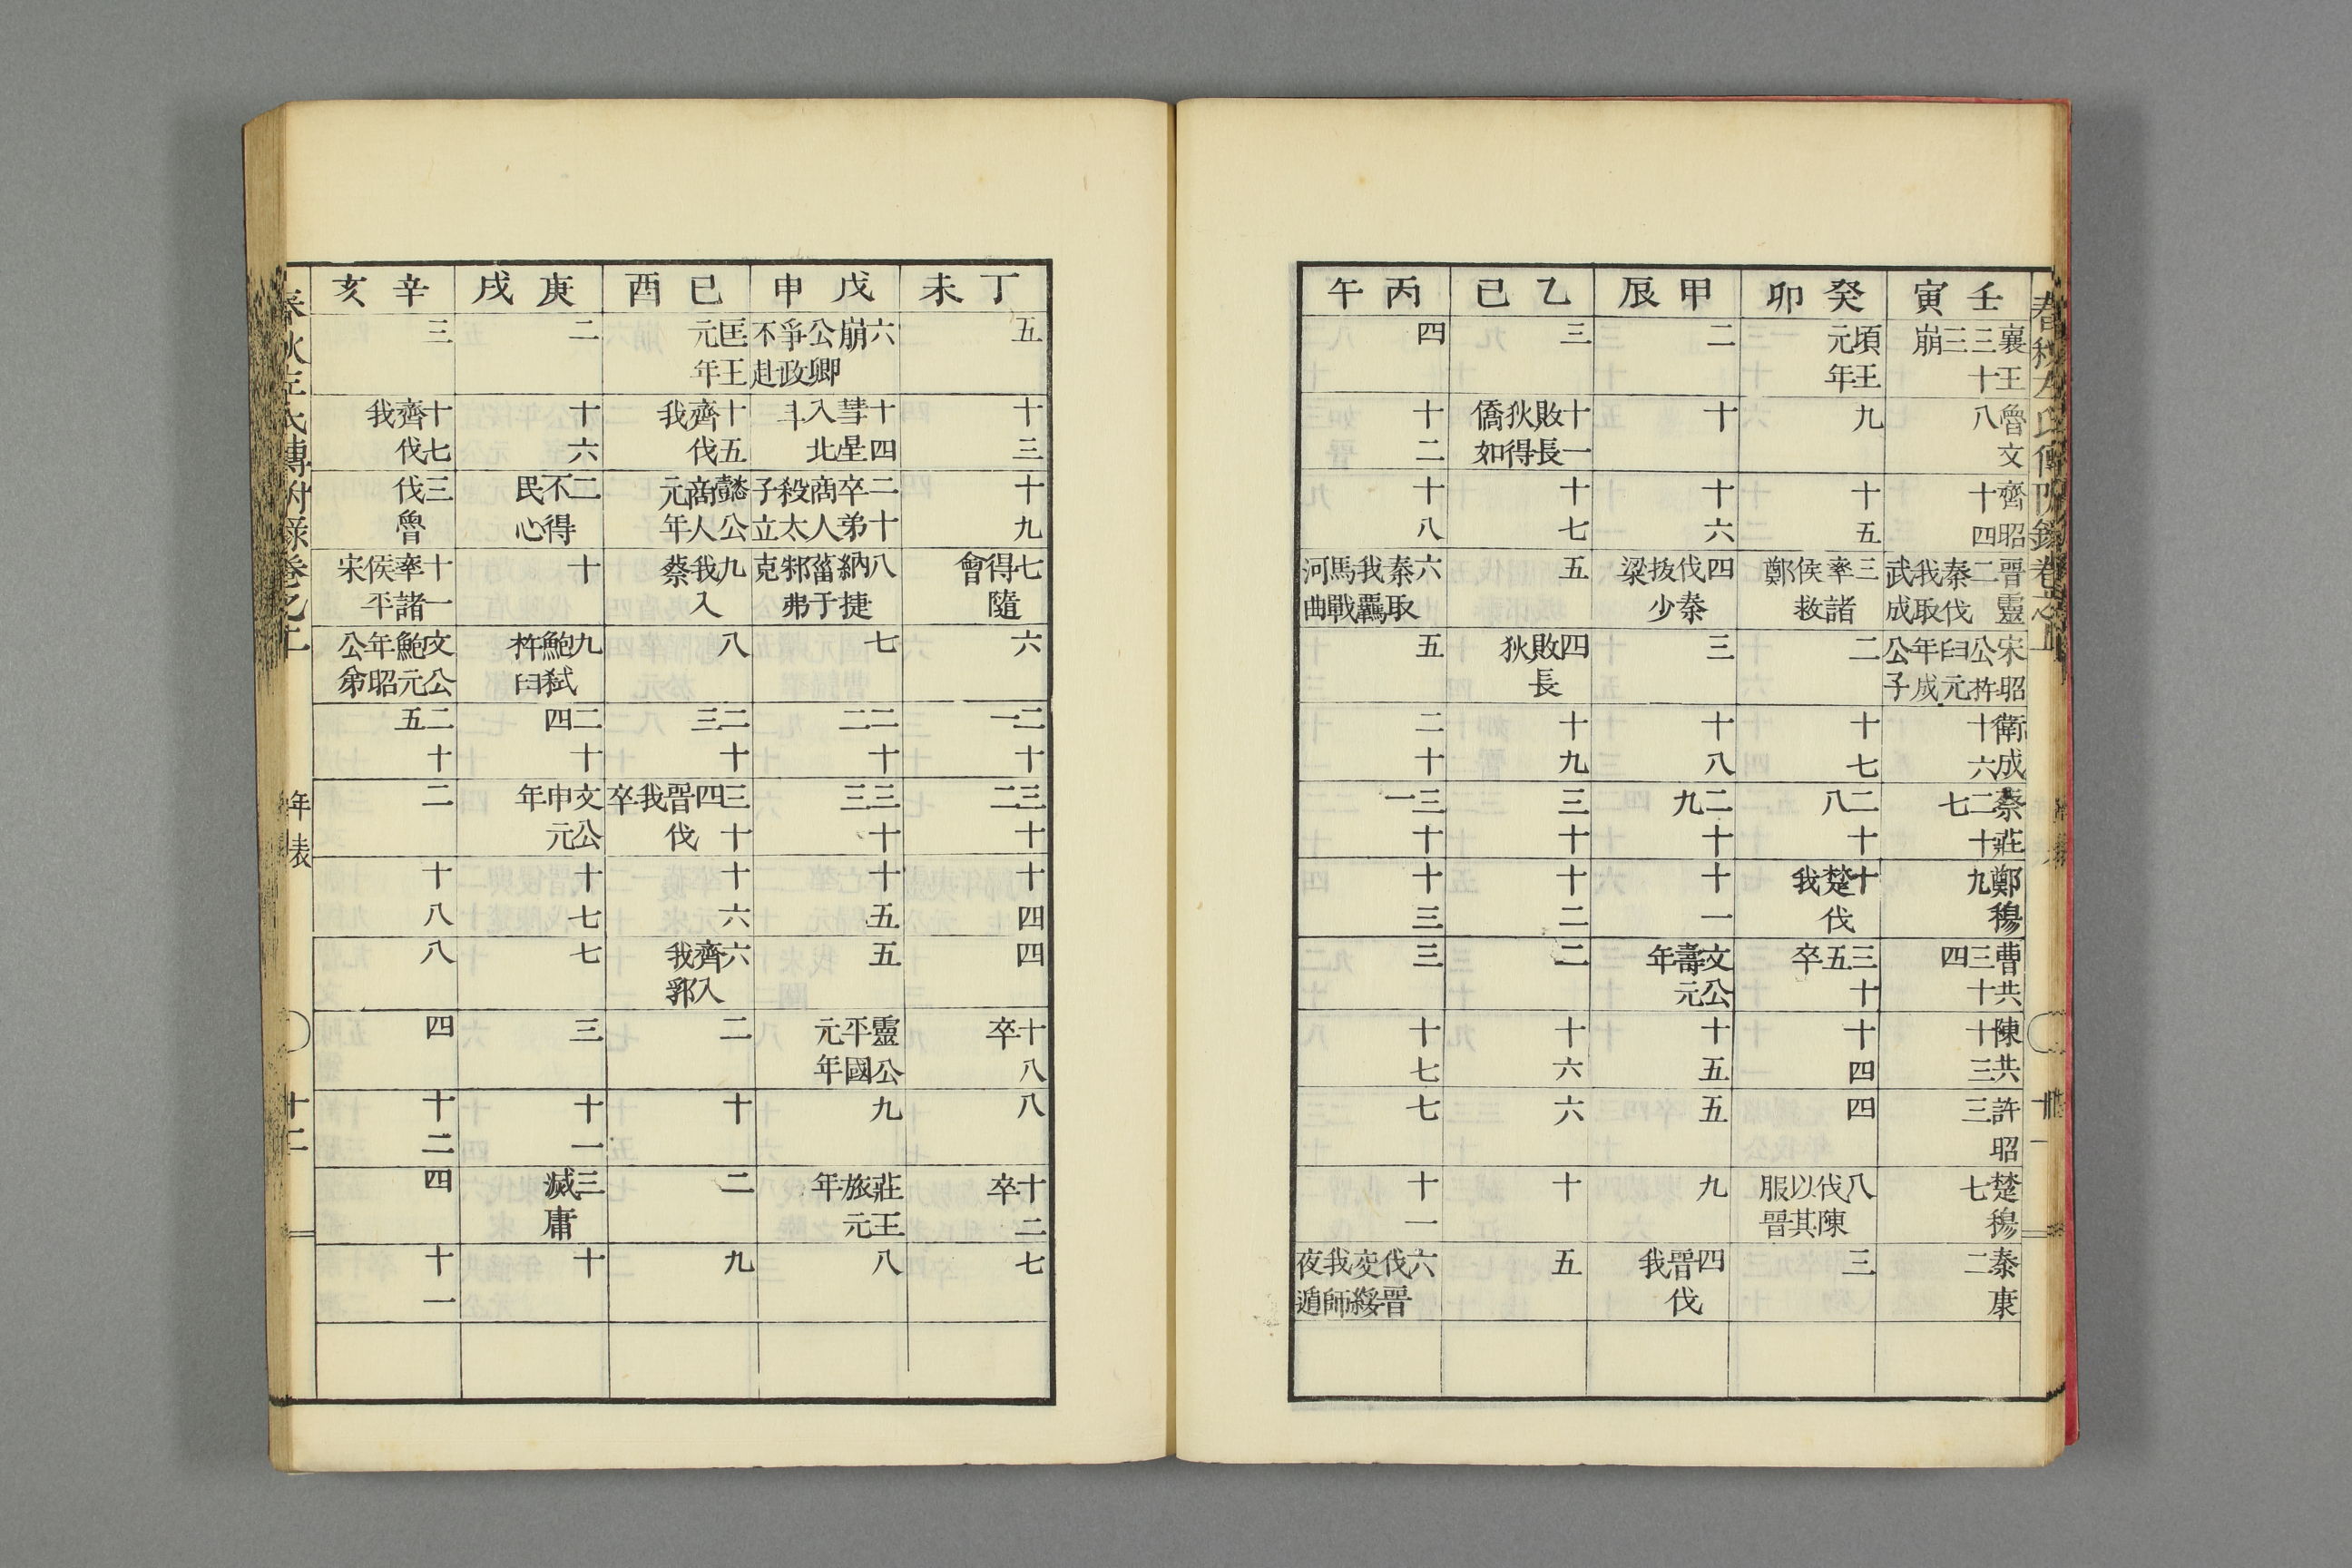 春秋左氏傳附錄卷之上
壬寅
襄王三十三崩
魯文八
齊昭十四
晉靈二秦伐我取武成
宋昭公杵臼元年成公子
衛成十六
蔡莊二十七
鄭穆九
曹共三十四
陳共十三
許昭三
楚穆七
秦康二
癸卯
頃王元年
九
十五
三率諸侯救鄭
二
十七
二十八
十楚伐我
三十五卒
十四
四
八伐陳以其服晉
三
甲辰
二
十
十六
四伐秦拔少梁
三
十八
二十九
十一
文公壽元年
十五
五
九
四晉伐我
乙巳
三
十一敗長狄得僑如
十七
五
四敗長狄
十九
三十
十二
二
十六
六
十
五
丙午
四
十二
十八
六秦取我羈馬戰河曲
五
二十
三十一
十三
三
十七
七
十一
六伐晉交綏我師夜遁
丁未
五
十三
十九
七得隨會
六
二十一
三十二
十四
四
十八卒
八
十二卒
七
戊申
六崩公卿爭政不赴
十四彗星入北斗
二十卒弟商人殺太子立
八納捷菑于邾弗克
七
二十二
三十三
十五
五
靈公平國元年
九
莊王旅元年
八
己酉
匡王元年
十五齊伐我
懿公商人元年
九我入蔡
八
二十三
三十四晉伐我卒
十六
六齊入我郛
二
十
二
九
庚戌
二
十六
二不得民心
十
九鮑弒杵臼
二十四
文公申元年
十七
七
三
十一
三滅庸
十
辛亥
三
十七齊伐我
三伐魯
十一率諸侯平宋
文公鮑元年昭公弟
二十五
二
十八
八
四
十二
四
十一
春秋左氏傳附錄卷之上 年表 十二